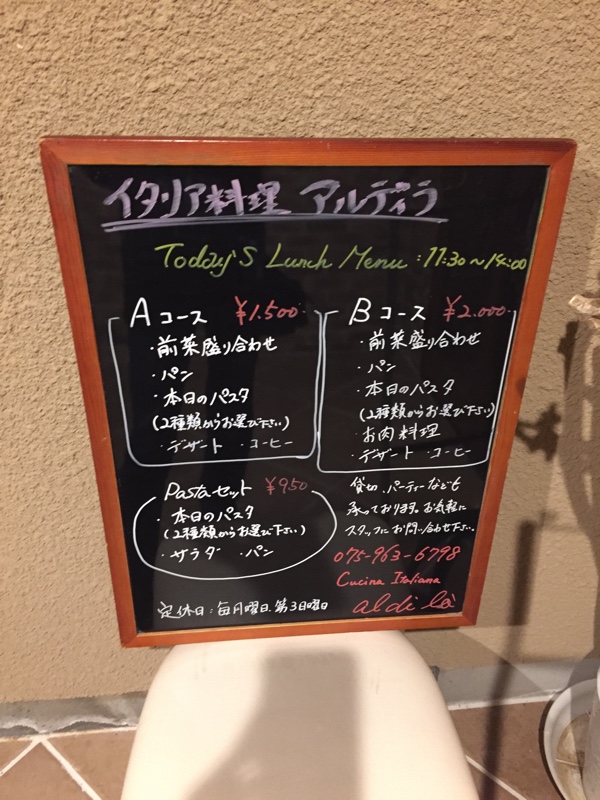 イタリア料理 アルディラ
Today's Lunch Menu : 11:30～14:00
Aコース ¥1.500
・前菜盛り合わせ
・パン
・本日のパスタ
(2種類からお選び下さい)
・デザート ・コーヒー
Bコース ¥2.000
・前菜盛り合わせ
・パン
・本日のパスタ
(2種類からお選び下さい)
・お肉料理
・デザート ・コーヒー
Pastaセット ¥950
・本日のパスタ
(2種類からお選び下さい)
・サラダ ・パン
貸切、パーティーなども
承っております。お気軽に
スタッフにお問い合わせ下さい。
075-963-6798
Cucina Italiana
al di là
定休日：毎月曜日、第3日曜日